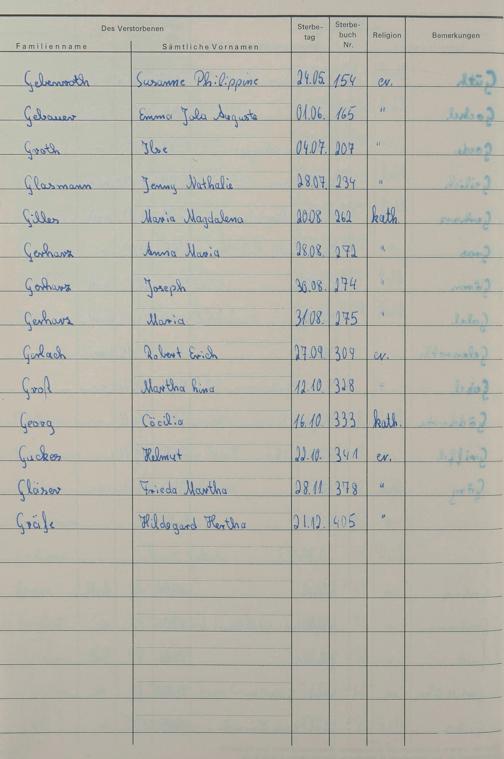 Des Verstorbenen
Familienname Sämtliche Vornamen Sterbe-tag Sterbe-buch Nr. Religion Bemerkungen
Gebenroth Susanne Philippine 24.05. 154 ev.
Gebauer Emma Jula Auguste 01.06. 165 "
Groth Ilse 04.07. 207 "
Glasmann Jenny Nathalie 28.07. 234 "
Gilles Maria Magdalena 20.08 262 kath.
Gerharz Anna Maria 28.08. 272 "
Gerharz Joseph 30.08. 274 "
Gerharz Maria 31.08. 275 "
Gerlach Robert Erich 27.09. 309 ev.
Groß Martha Lina 12.10. 328 "
Georg Cäcilia 16.10. 333 kath.
Guckes Helmut 22.10. 341 ev.
Gläser Frieda Martha 28.11. 378 "
Gräfe Hildegard Hertha 21.12. 405 "